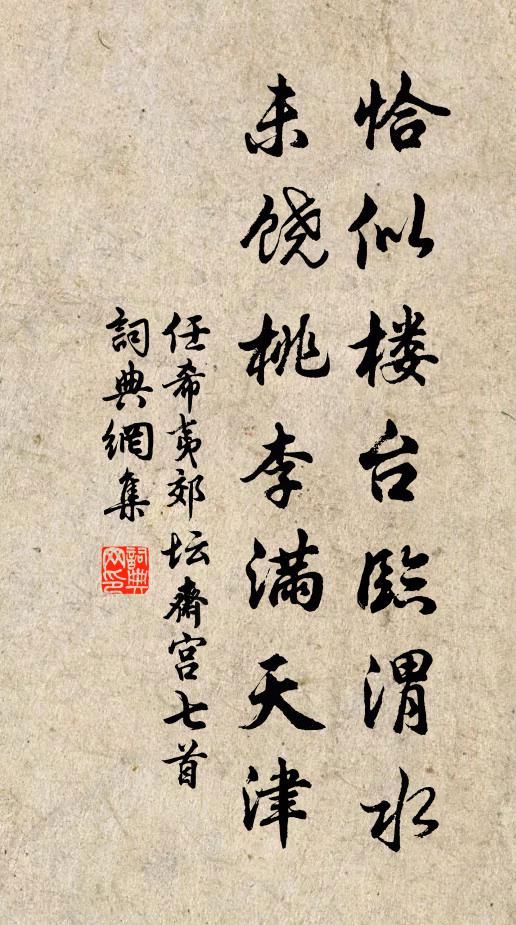 恰似楼台臨渭水
未饶桃李满天津
任希夷郊坛齋宫七首
詞典網集
詞典网印